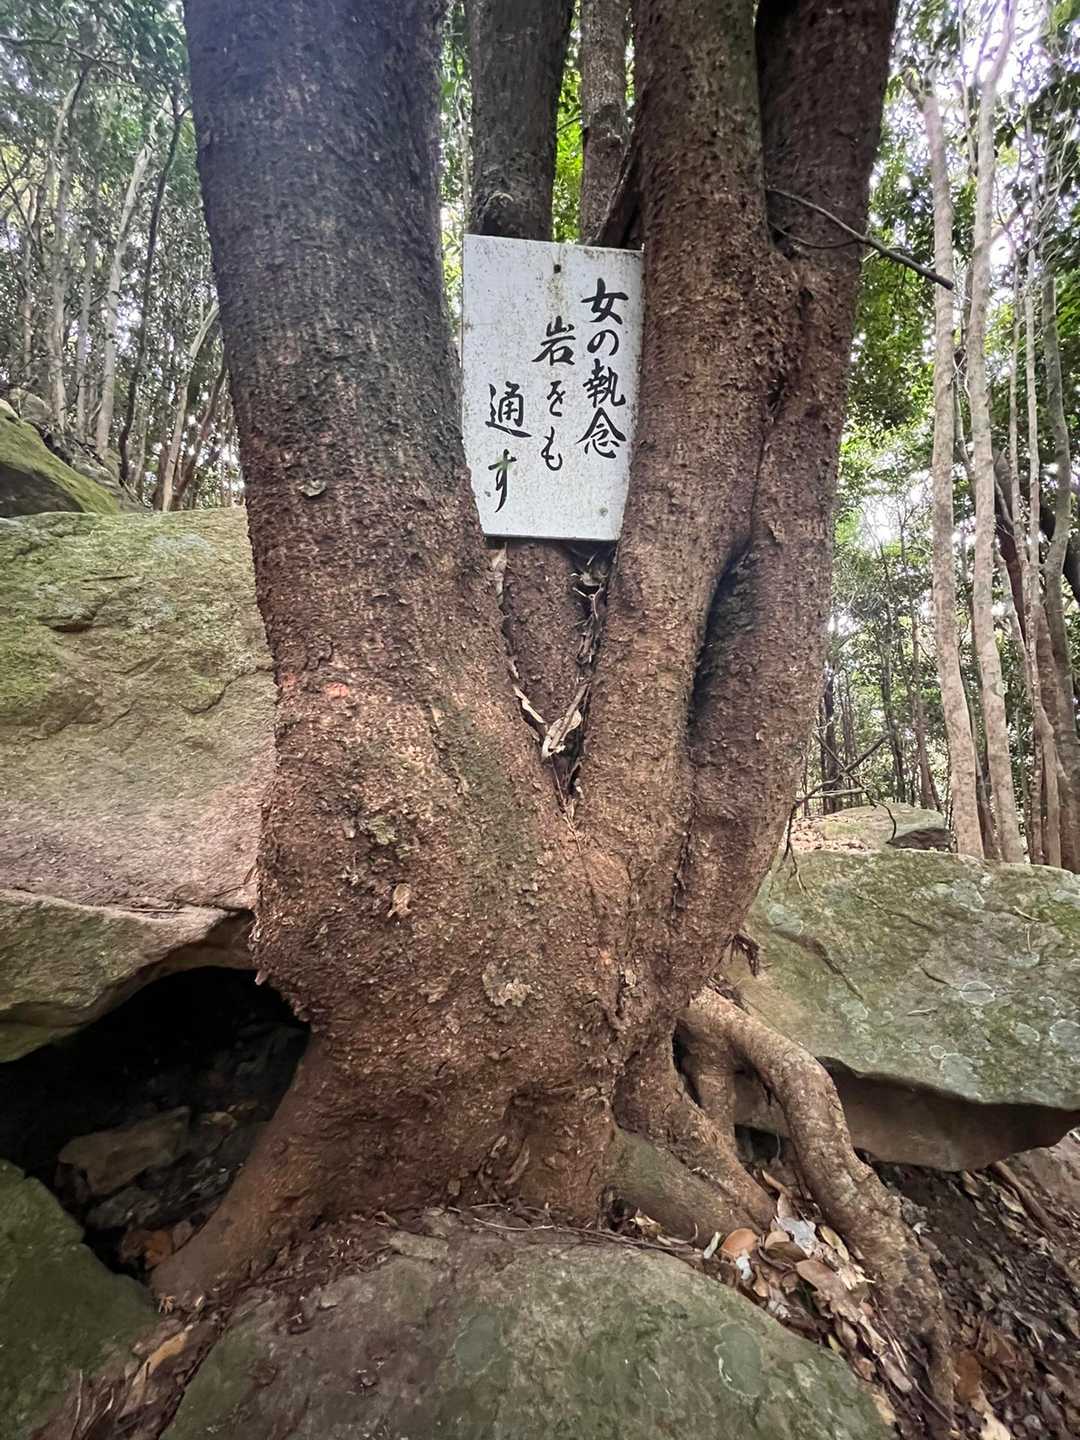 女の執念
岩をも
通す